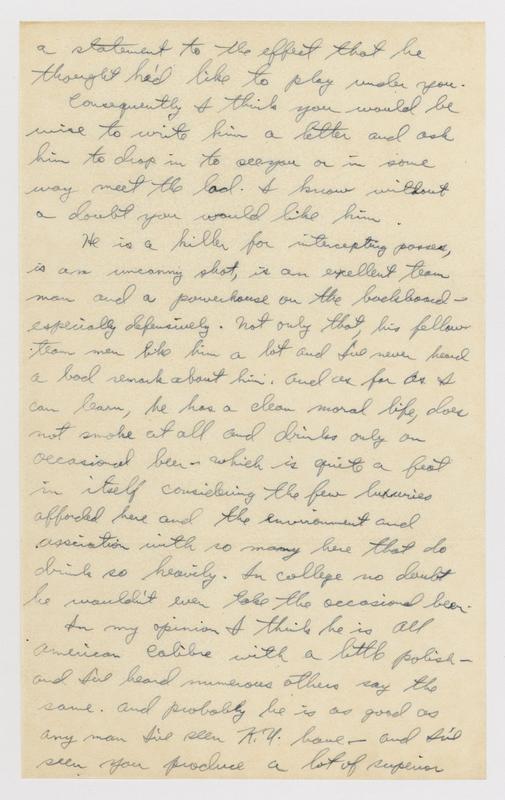 a statement to the effect that he
thought he'd like to play under you.
Consequently I think you would be
wise to write him a letter and ask
him to drop in to see you or in some
way meet the lad. I know without
a doubt you would like him.
He is a killer for intercepting passes,
is an uncanny shot, is an excellent team
man and a powerhouse on the backboard -
especially defensively. Not only that, his fellow
team men like him a lot and I've never heard
a bad remark about him. And as far as I
can learn, he has a clean moral life, does
not smoke at all and drinks only an
occasional beer - which is quite a feat
in itself considering the few luxuries
afforded here and the environment and
association with so many here that do
drink so heavily. In college no doubt
he wouldn't even take the occasional beer.
In my opinion I think he is All
American calibre with a little polish -
and I've heard numerous others say the
same. And probably he is as good as
any man I've seen K.U. have - and I've
seen you produce a lot of superior